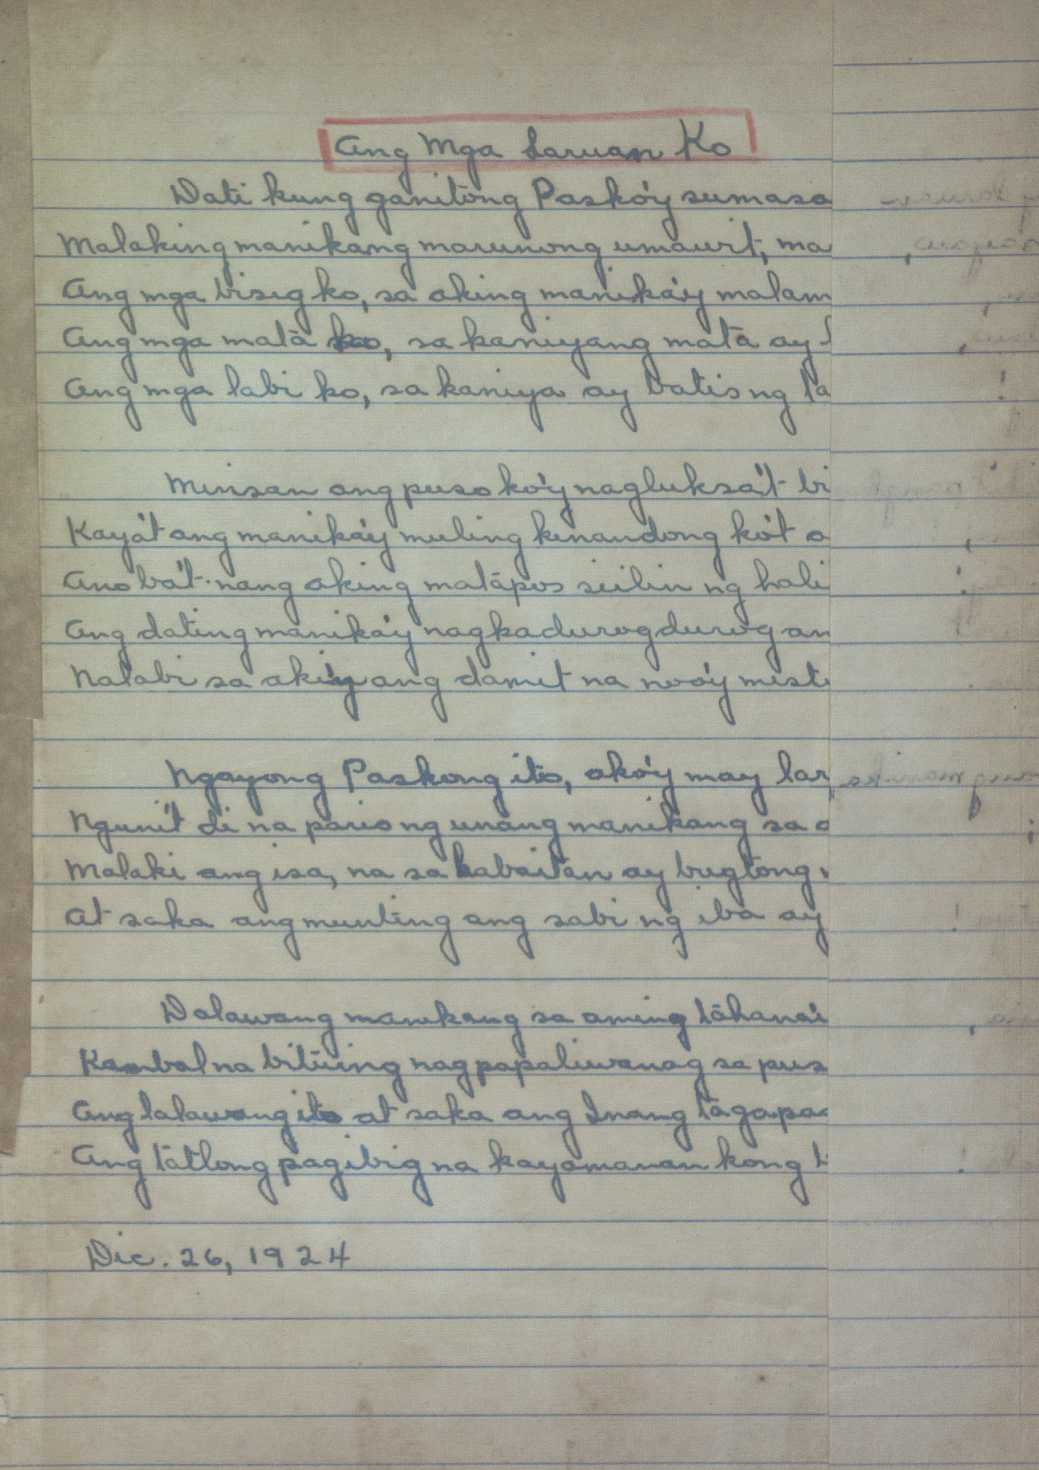 Ang Mga Laruan Ko
Dati kung ganitong Pasko'y sumasa
Malaking manikang marunong umawit, ma
Ang mga bisig ko, sa aking manika'y malam
Ang mga matà ko, sa kaniyang matà ay
Ang mga labi ko, sa kaniya ay batis ng ta
Minsan ang puso ko'y nagluksa't bi
Kaya't ang manika'y muling kinandong ko't a
Ano ba't nang aking matapos siilin ng hali
Ang dating manika'y nagkadurogdurog an
Nalabi sa aki'y ang damit na noo'y mist
Ngayong Paskong ito, ako'y may lar
Nguni't di na pario ng unang manikang sa a
Malaki ang isa, na sa kabaitan ay bugtong
At saka ang munting ang sabi ng iba ay
Dalawang manikang sa aming tāhana'i
Kambal na bituing nagpapaliwanag sa pus
Ang lalawang ito at saka ang Inang tagapa
Ang tatlong pagibig na kayamanan kong
Dic. 26, 1924